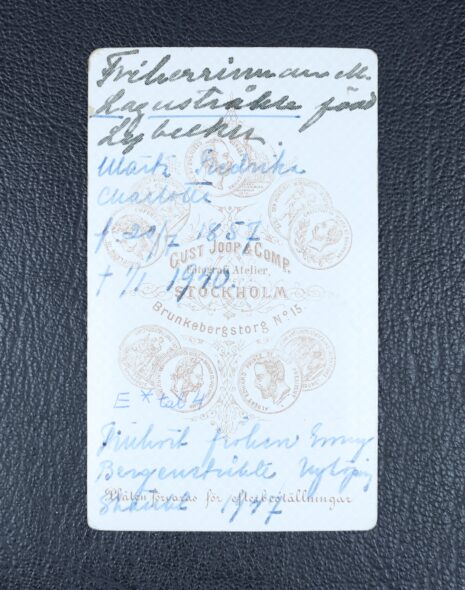 Friherrinnan M.
Lagerstråhle född
Lybecker.
Märta Fredrika
Charlotta
f. 29/7 1857
GUST. JOOP & COMP.
Fotografi Atelier,
† 1/1 1910.
STOCKHOLM
Brunkebergstorg No 15
E * tab 4
fröken Emmy
Bergenstråhle Nyköping
Plåten förvaras för efterbeställningar
1947